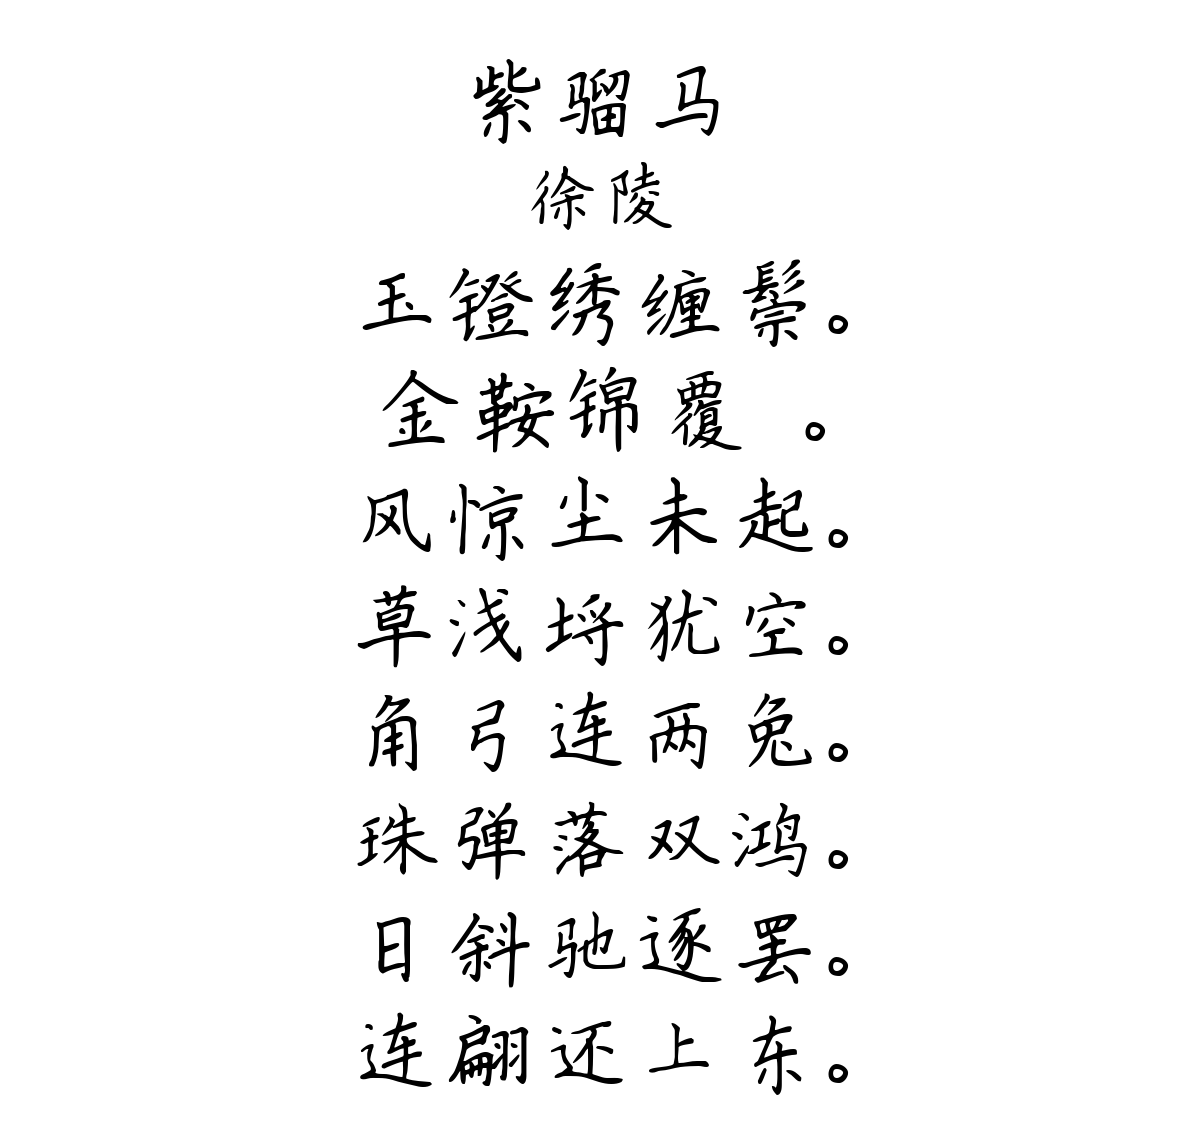 紫骝马
徐陵
玉镫绣缠鬃。
金鞍锦覆 。
风惊尘未起。
草浅埒犹空。
角弓连两兔。
珠弹落双鸿。
日斜驰逐罢。
连翩还上东。